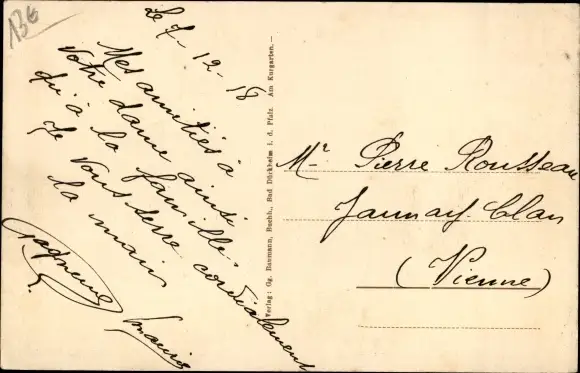 136
Le 7-12-18
Mes amitiés à
votre dame ainsi
qu'à la famille.
Je vous serre cordialement
la main
Verlag: Gg. Baumann, Buchh., Bad Dürkheim i. d. Pfalz. Am Kurgarten.
Mr Pierre Rousseau
Jaunay-Clan
(Vienne)